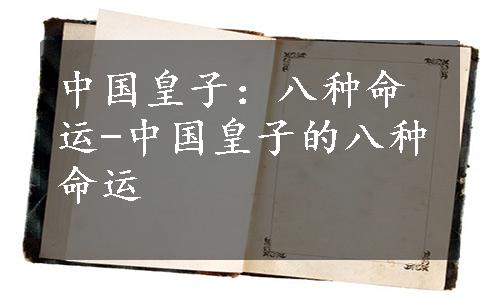 中国皇子：八种命
运-中国皇子的八种
命运